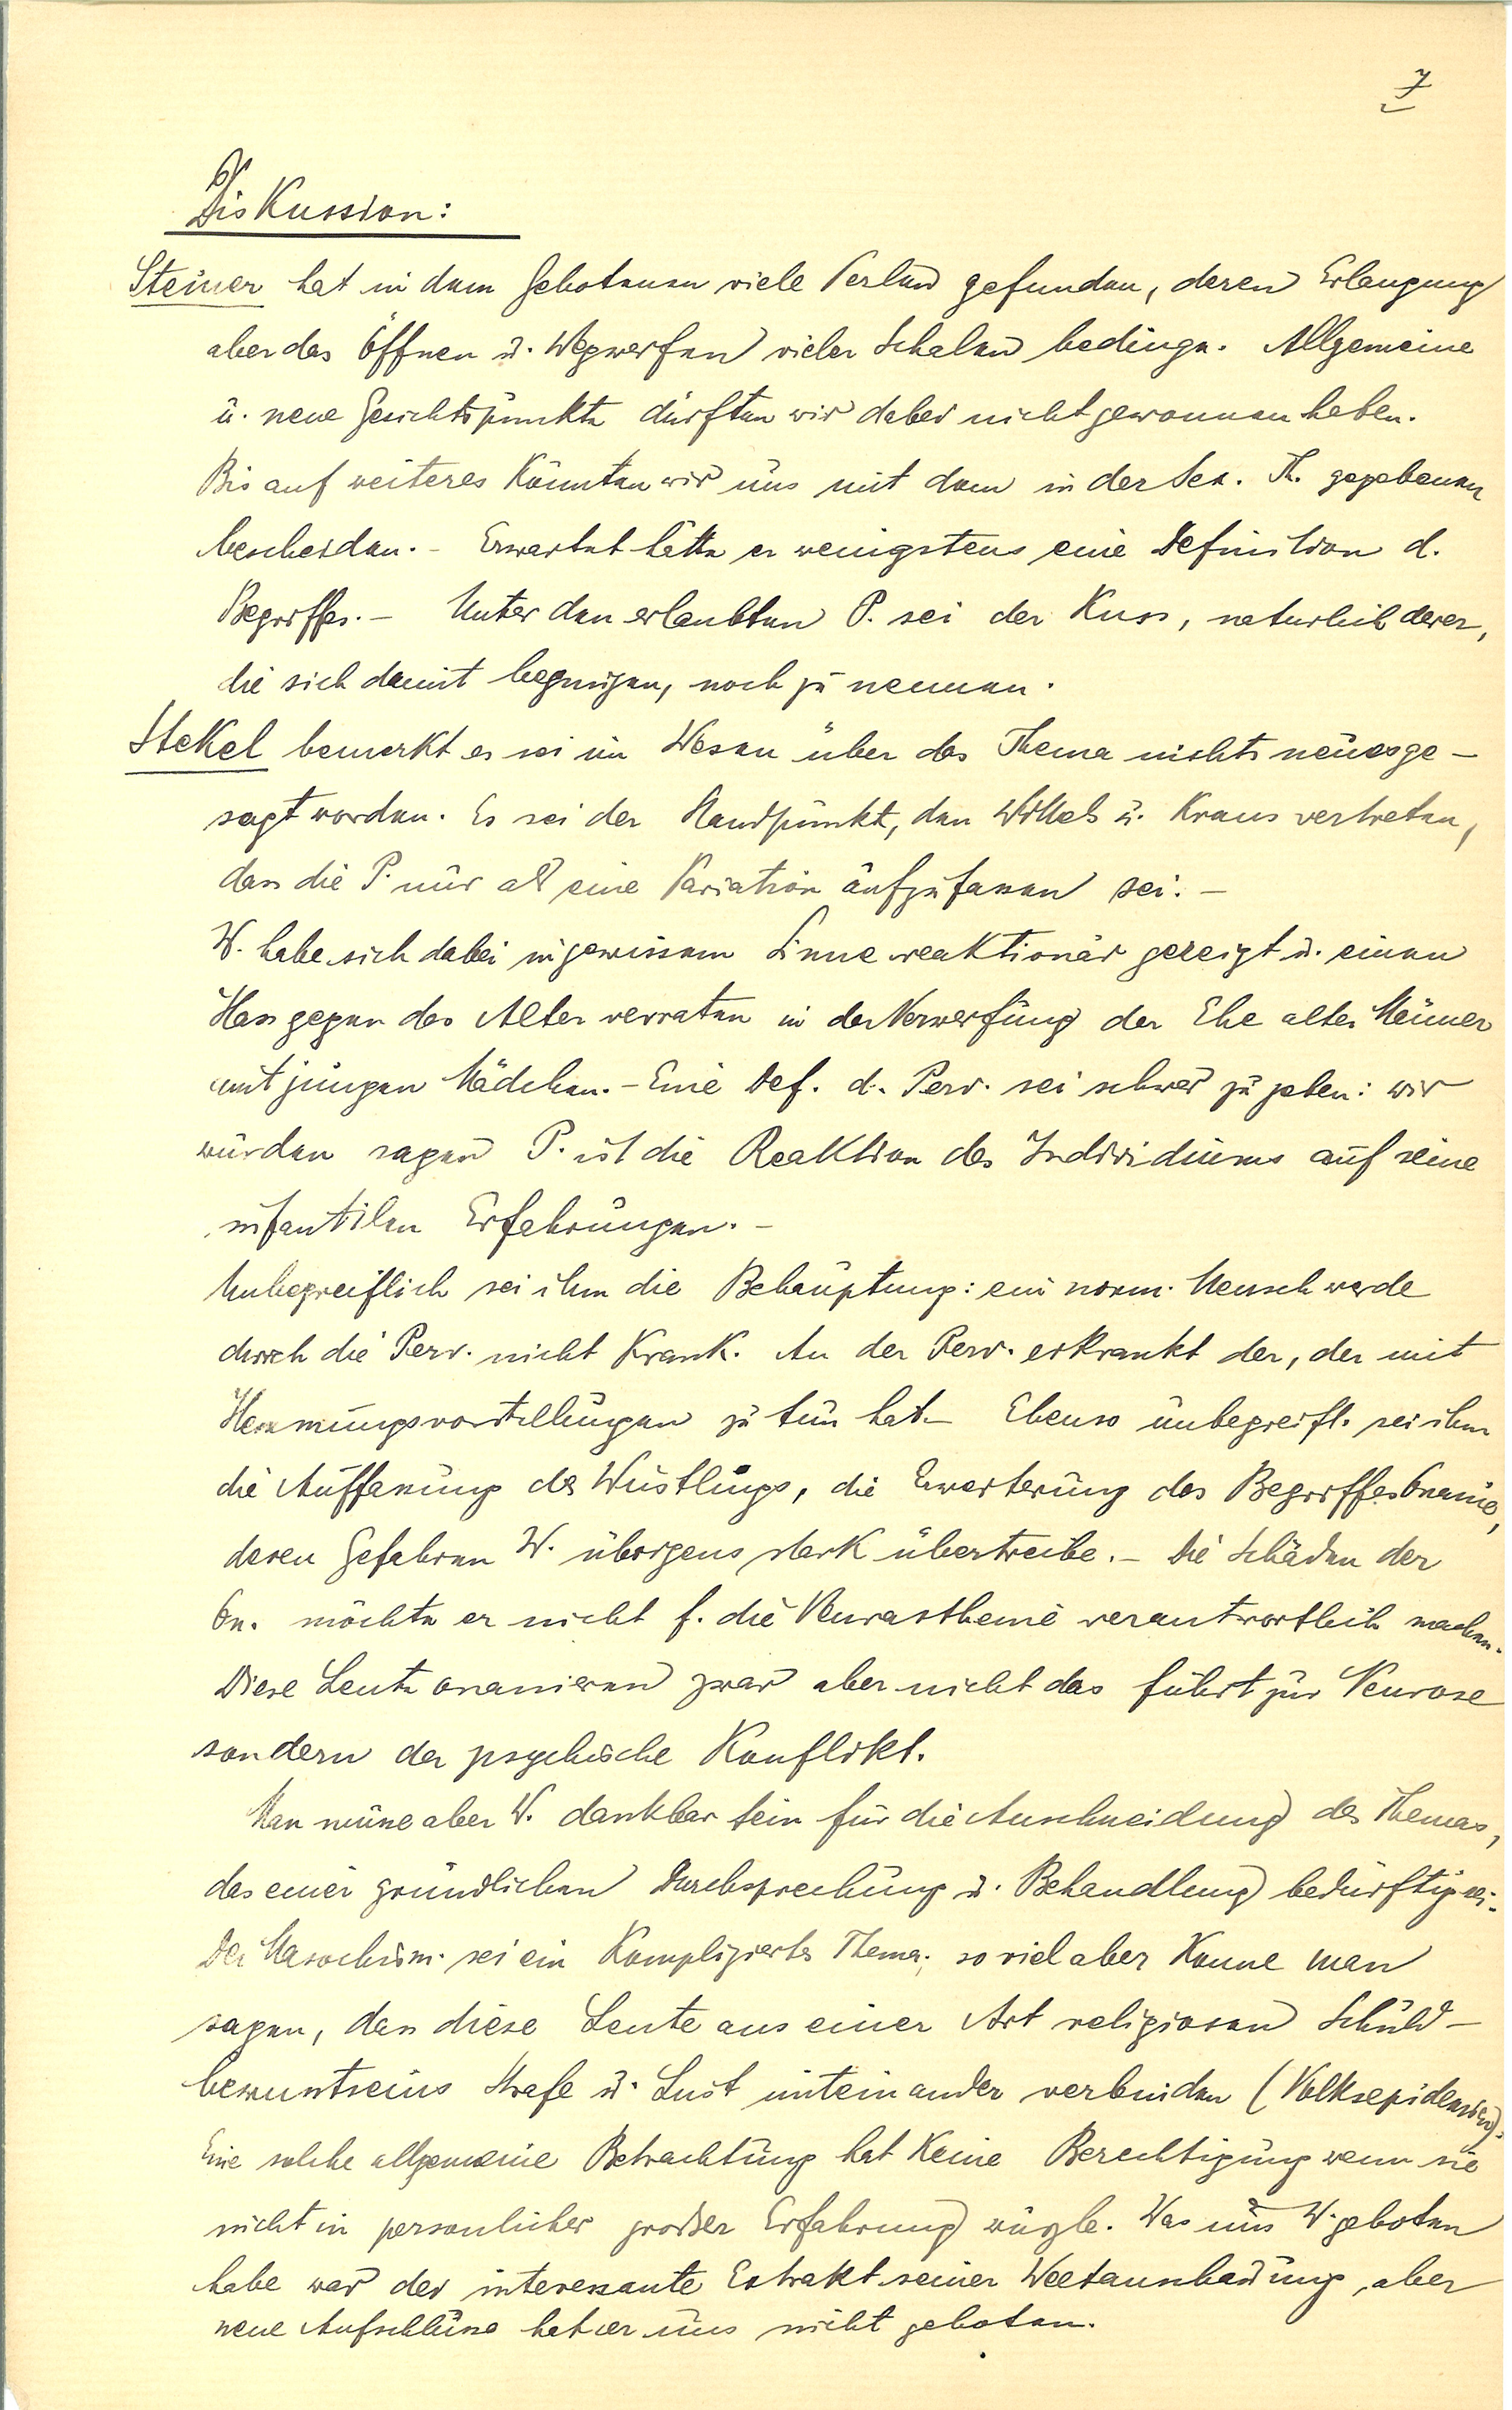 7
Diskussion:
Steiner hat in dem Gebotenen viele Perlen gefunden, deren Erlangung
aber das Öffnen u. Wegwerfen vieler Schalen bedinge. Allgemeine
u. neue Gesichtspunkte dürften wir dabei nicht gewonnen haben.
Bis auf weiteres könnten wir uns mit dem in der Sex. Th. gegebenen
bescheiden. - Erwartet hätte er wenigstens eine Definition d.
Begriffes. - Unter den erlaubten P. sei der Kuss, naturlich derer,
die sich damit begnügen, noch zu nennen.
Stekel bemerkt es sei im Wesen über das Thema nichts neues ge-
sagt worden. Es sei der Standpunkt, den Wittels u. Kraus vertreten,
dass die P. nur als eine Variation aufzufassen sei. -
W. habe sich dabei in gewissem Sinne reaktionär gezeigt u. einen
Hass gegen das Alter verraten in der Verwerfung der Ehe alter Männer
mit jungen Mädchen. - Eine Def. d. Perv. sei schwer zu geben: wir
würden sagen P. ist die Reaktion des Individuums auf seine
infantilen Erfahrungen. -
Unbegreiflich sei ihm die Behauptung: ein norm. Mensch werde
durch die Perv. nicht krank. An der Perv. erkrankt der, der mit
Hemmungsvorstellungen zu tun hat. - Ebenso unbegreifl. sei ihm
die Auffassung des Wüstlings, die Erweiterung des Begriffes Onanie,
deren Gefahren W. übrigens stark übertreibe. - Die Schäden der
On. möchte er nicht f. die Neurasthenie verantwortlich machen.
Diese Leute onanieren zwar aber nicht das führt zur Neurose
sondern der psychische Konflikt.
Man müsse aber W. dankbar sein für die Anschneidung des Themas,
das einer gründlichen Durchsprechung u. Behandlung bedürftig sei.
Der Masochism. sei ein kompliziertes Thema; so viel aber konne man
sagen, dass diese Leute aus einer Art religiosen Schuld-
bewusstseins Strafe u. Lust miteinander verbinden (Volksepidemien).
Eine solche allgemeine Betrachtung hat keine Berechtigung wenn sie
nicht in personlicher großer Erfahrung wurzle. Was uns W. geboten
habe war der interessante Extrakt seiner Weltanschauung, aber
neue Aufschlüsse hat er uns nicht geboten.